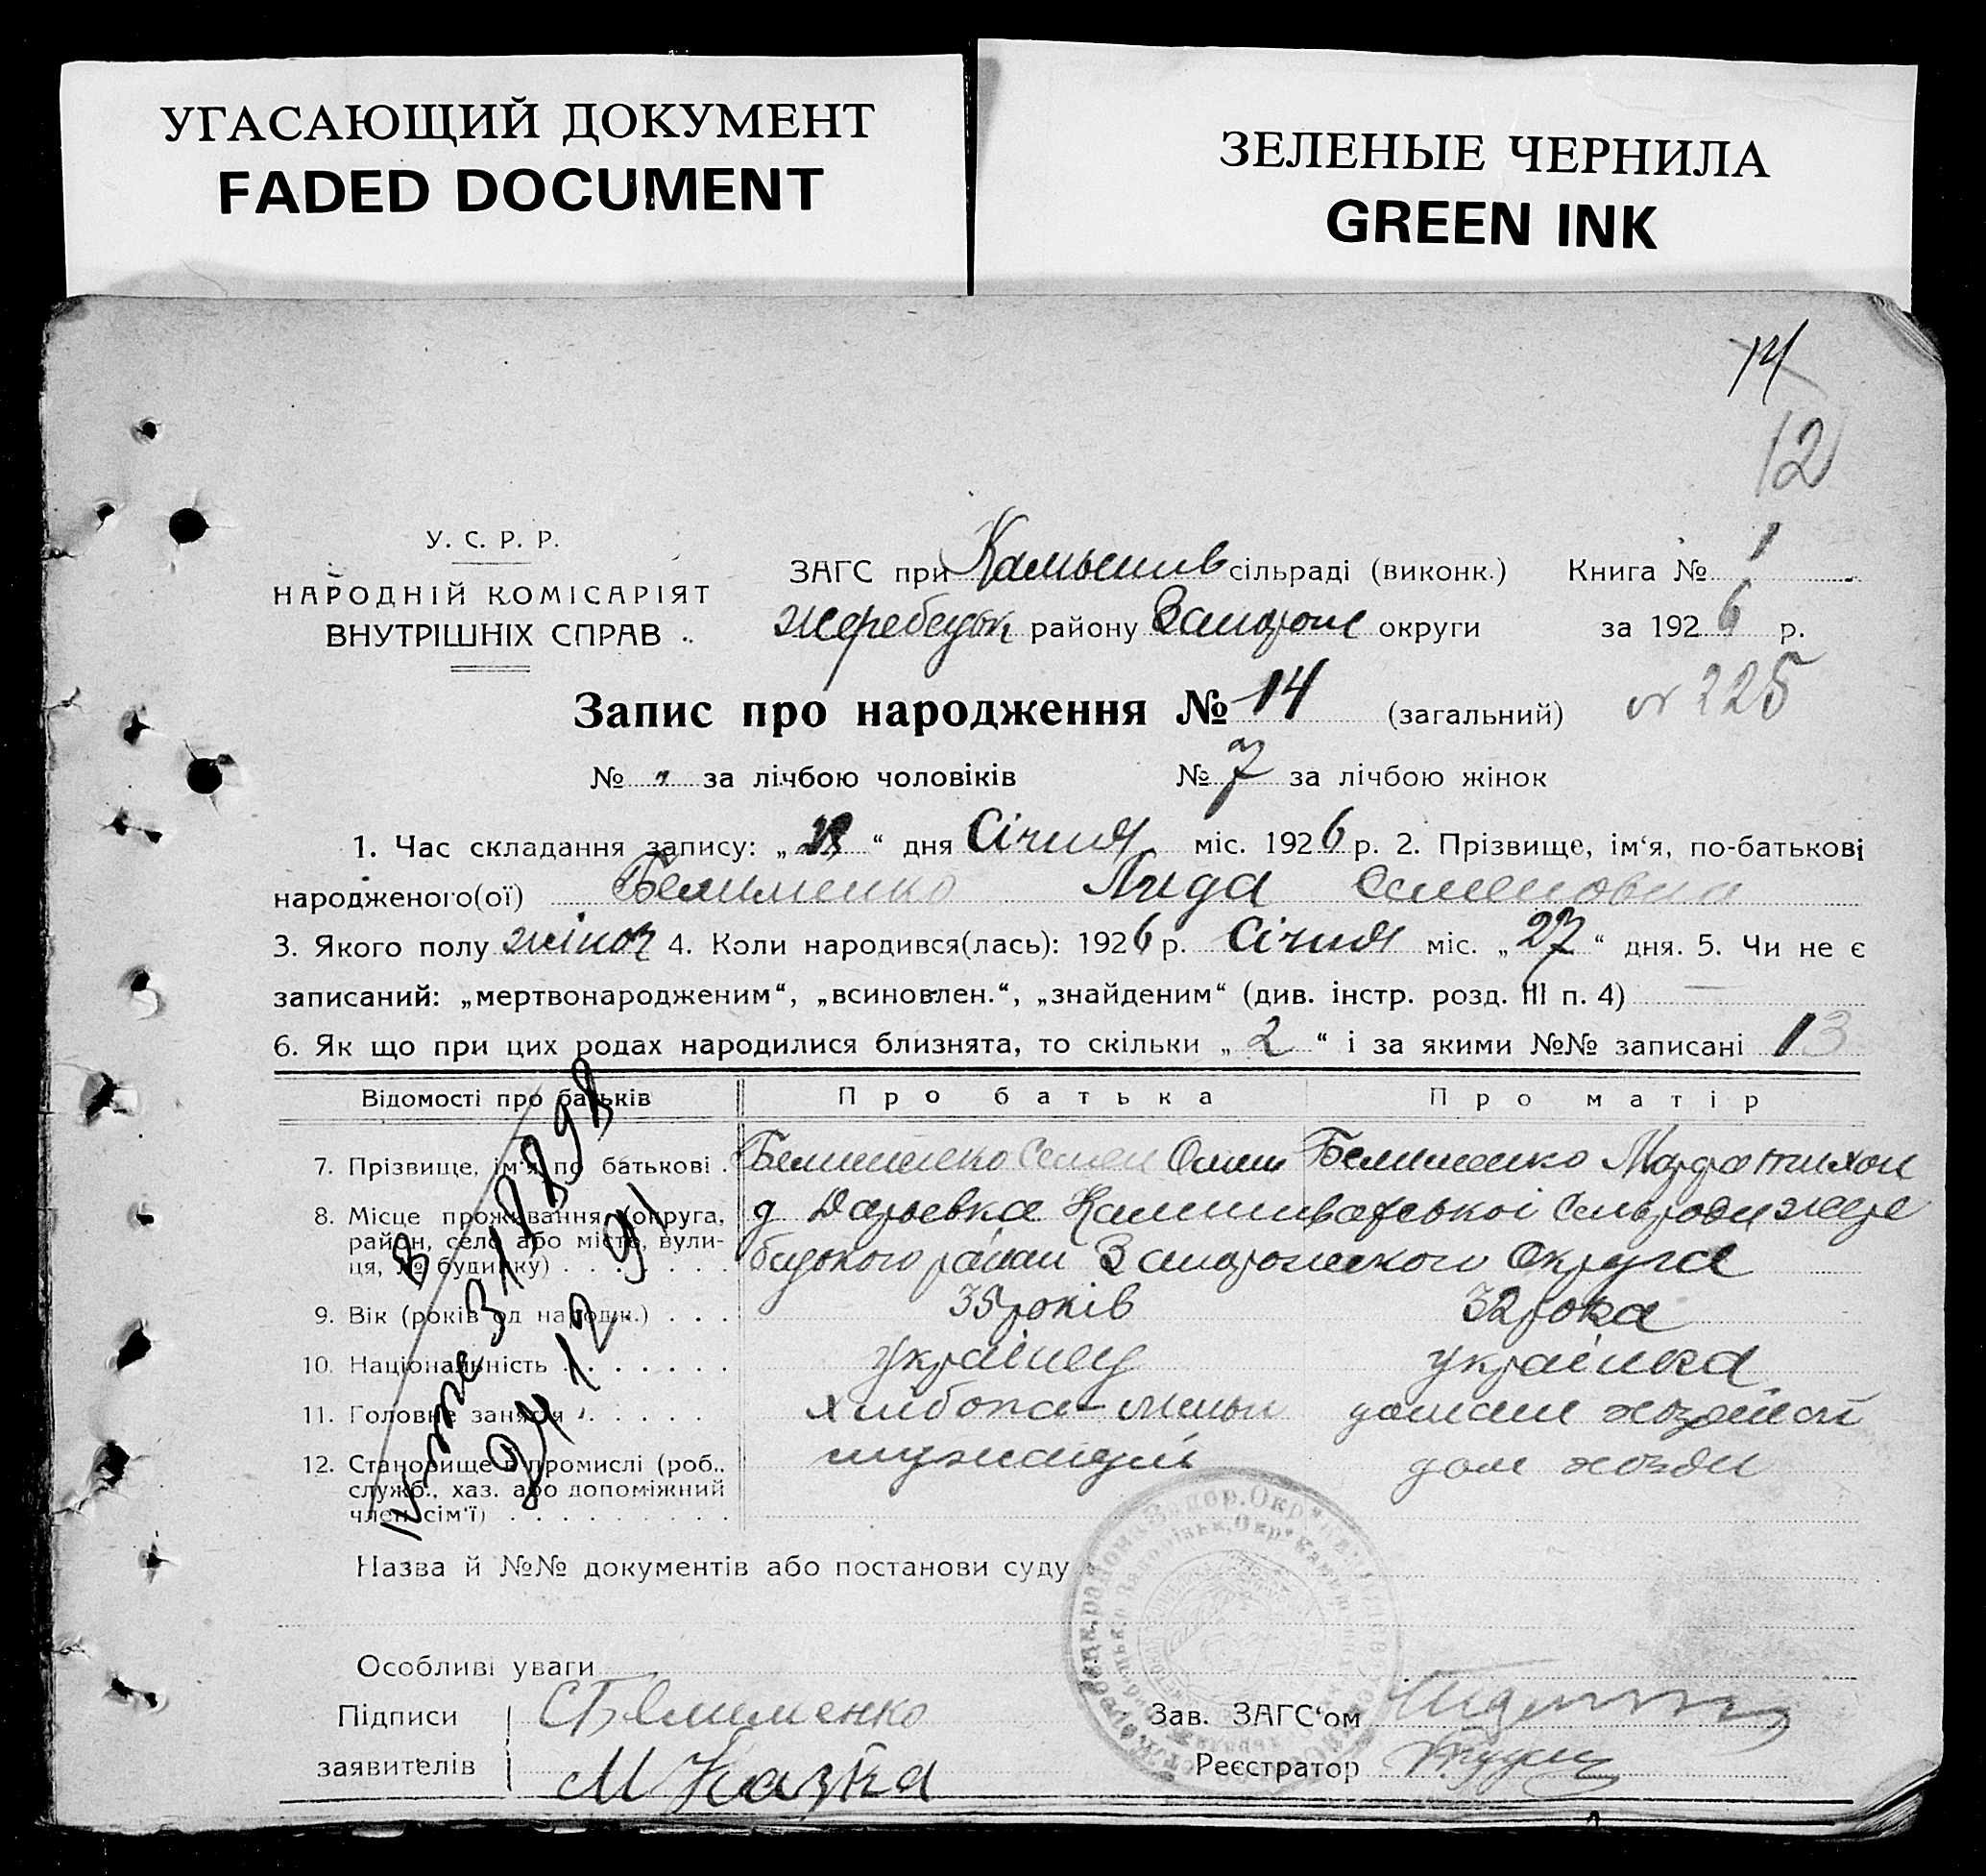 УГАСАЮЩИЙ ДОКУМЕНТ
FADED DOCUMENT
ЗЕЛЕНЫЕ ЧЕРНИЛА
GREEN INK
14
12
У. С. Р. Р.
НАРОДНІЙ КОМІСАРІЯТ
ВНУТРІШНІХ СПРАВ
ЗАГС при Камышив сільраді (виконк.) Книга № 1
Жеребецьк району Запорож округи за 1926 р.
Запис про народження № 14 (загальний) 225
№ за лічбою чоловіків № 7 за лічбою жінок
1. Час складання запису: „ “ дня Січня міс. 1926 р. 2. Прізвище, ім‘я, по-батькові
народженого(ої) Белименко Лида Семеновна
3. Якого полу жіноч 4. Коли народився(лась): 1926 р. Січня міс. „27“ дня. 5. Чи не є
записаний: „мертвонародженим“, „всиновлен.“, „знайденим“ (див. інстр. розд. III п. 4) —
6. Як що при цих родах народилися близнята, то скільки „2“ і за якими №№ записані 13
Відомості про батьків Про батька Про матір
7. Прізвище, ім‘я, по батькові Белименко Семен Белименко Марфа Тихон
8. Місце проживання (округа, район, село або місто, вулиця, № будинку) д Дарьевка
Запорожского Округа
9. Вік (років од народж.) 35 років 32 рока
10. Національність українец українка
11. Головне заняття хлибопа
12. Становище в промислі (роб., служб., хаз. або допоміжний член сім‘ї) дом
24 12 91
Назва й №№ документів або постанови суду
Особливі уваги
Підписи заявителів СБелименко
М Казка
Зав. ЗАГС‘ом
Реєстратор